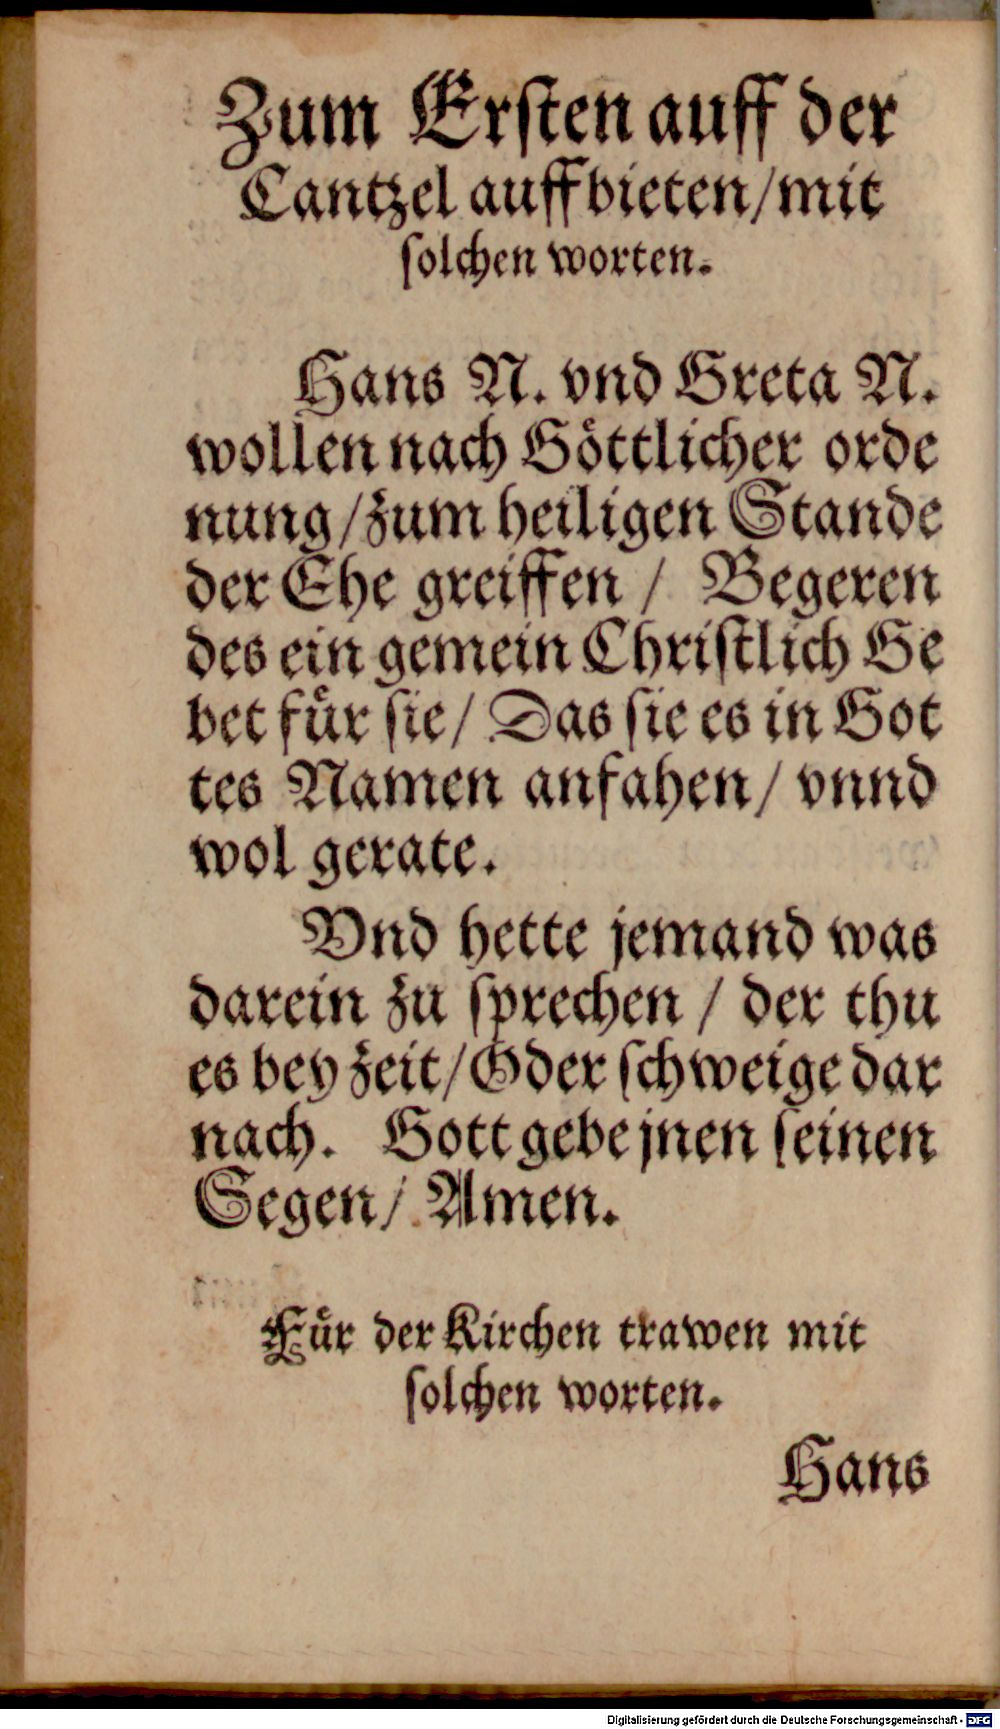 Zum Erſten auff der
Cantzel auffbieten/mit
ſolchen worten.
Hans N. vnd Greta N.
wollen nach Göttlicher orde
nung/zum heiligen Stande
der Ehe greiffen / Begeren
des ein gemein Chriſtlich Ge
bet für ſie/ Das ſie es in Got
tes Namen anfahen/ vnnd
wol gerate.
Vnd hette jemand was
darein zu ſprechen / der thu
es bey zeit/Oder ſchweige dar
nach. Gott gebe jnen ſeinen
Segen/ Amen.
Für der Kirchen trawen mit
ſolchen worten.
Hans
Digitalisierung gefördert durch die Deutsche Forschungsgemeinschaft - DFG